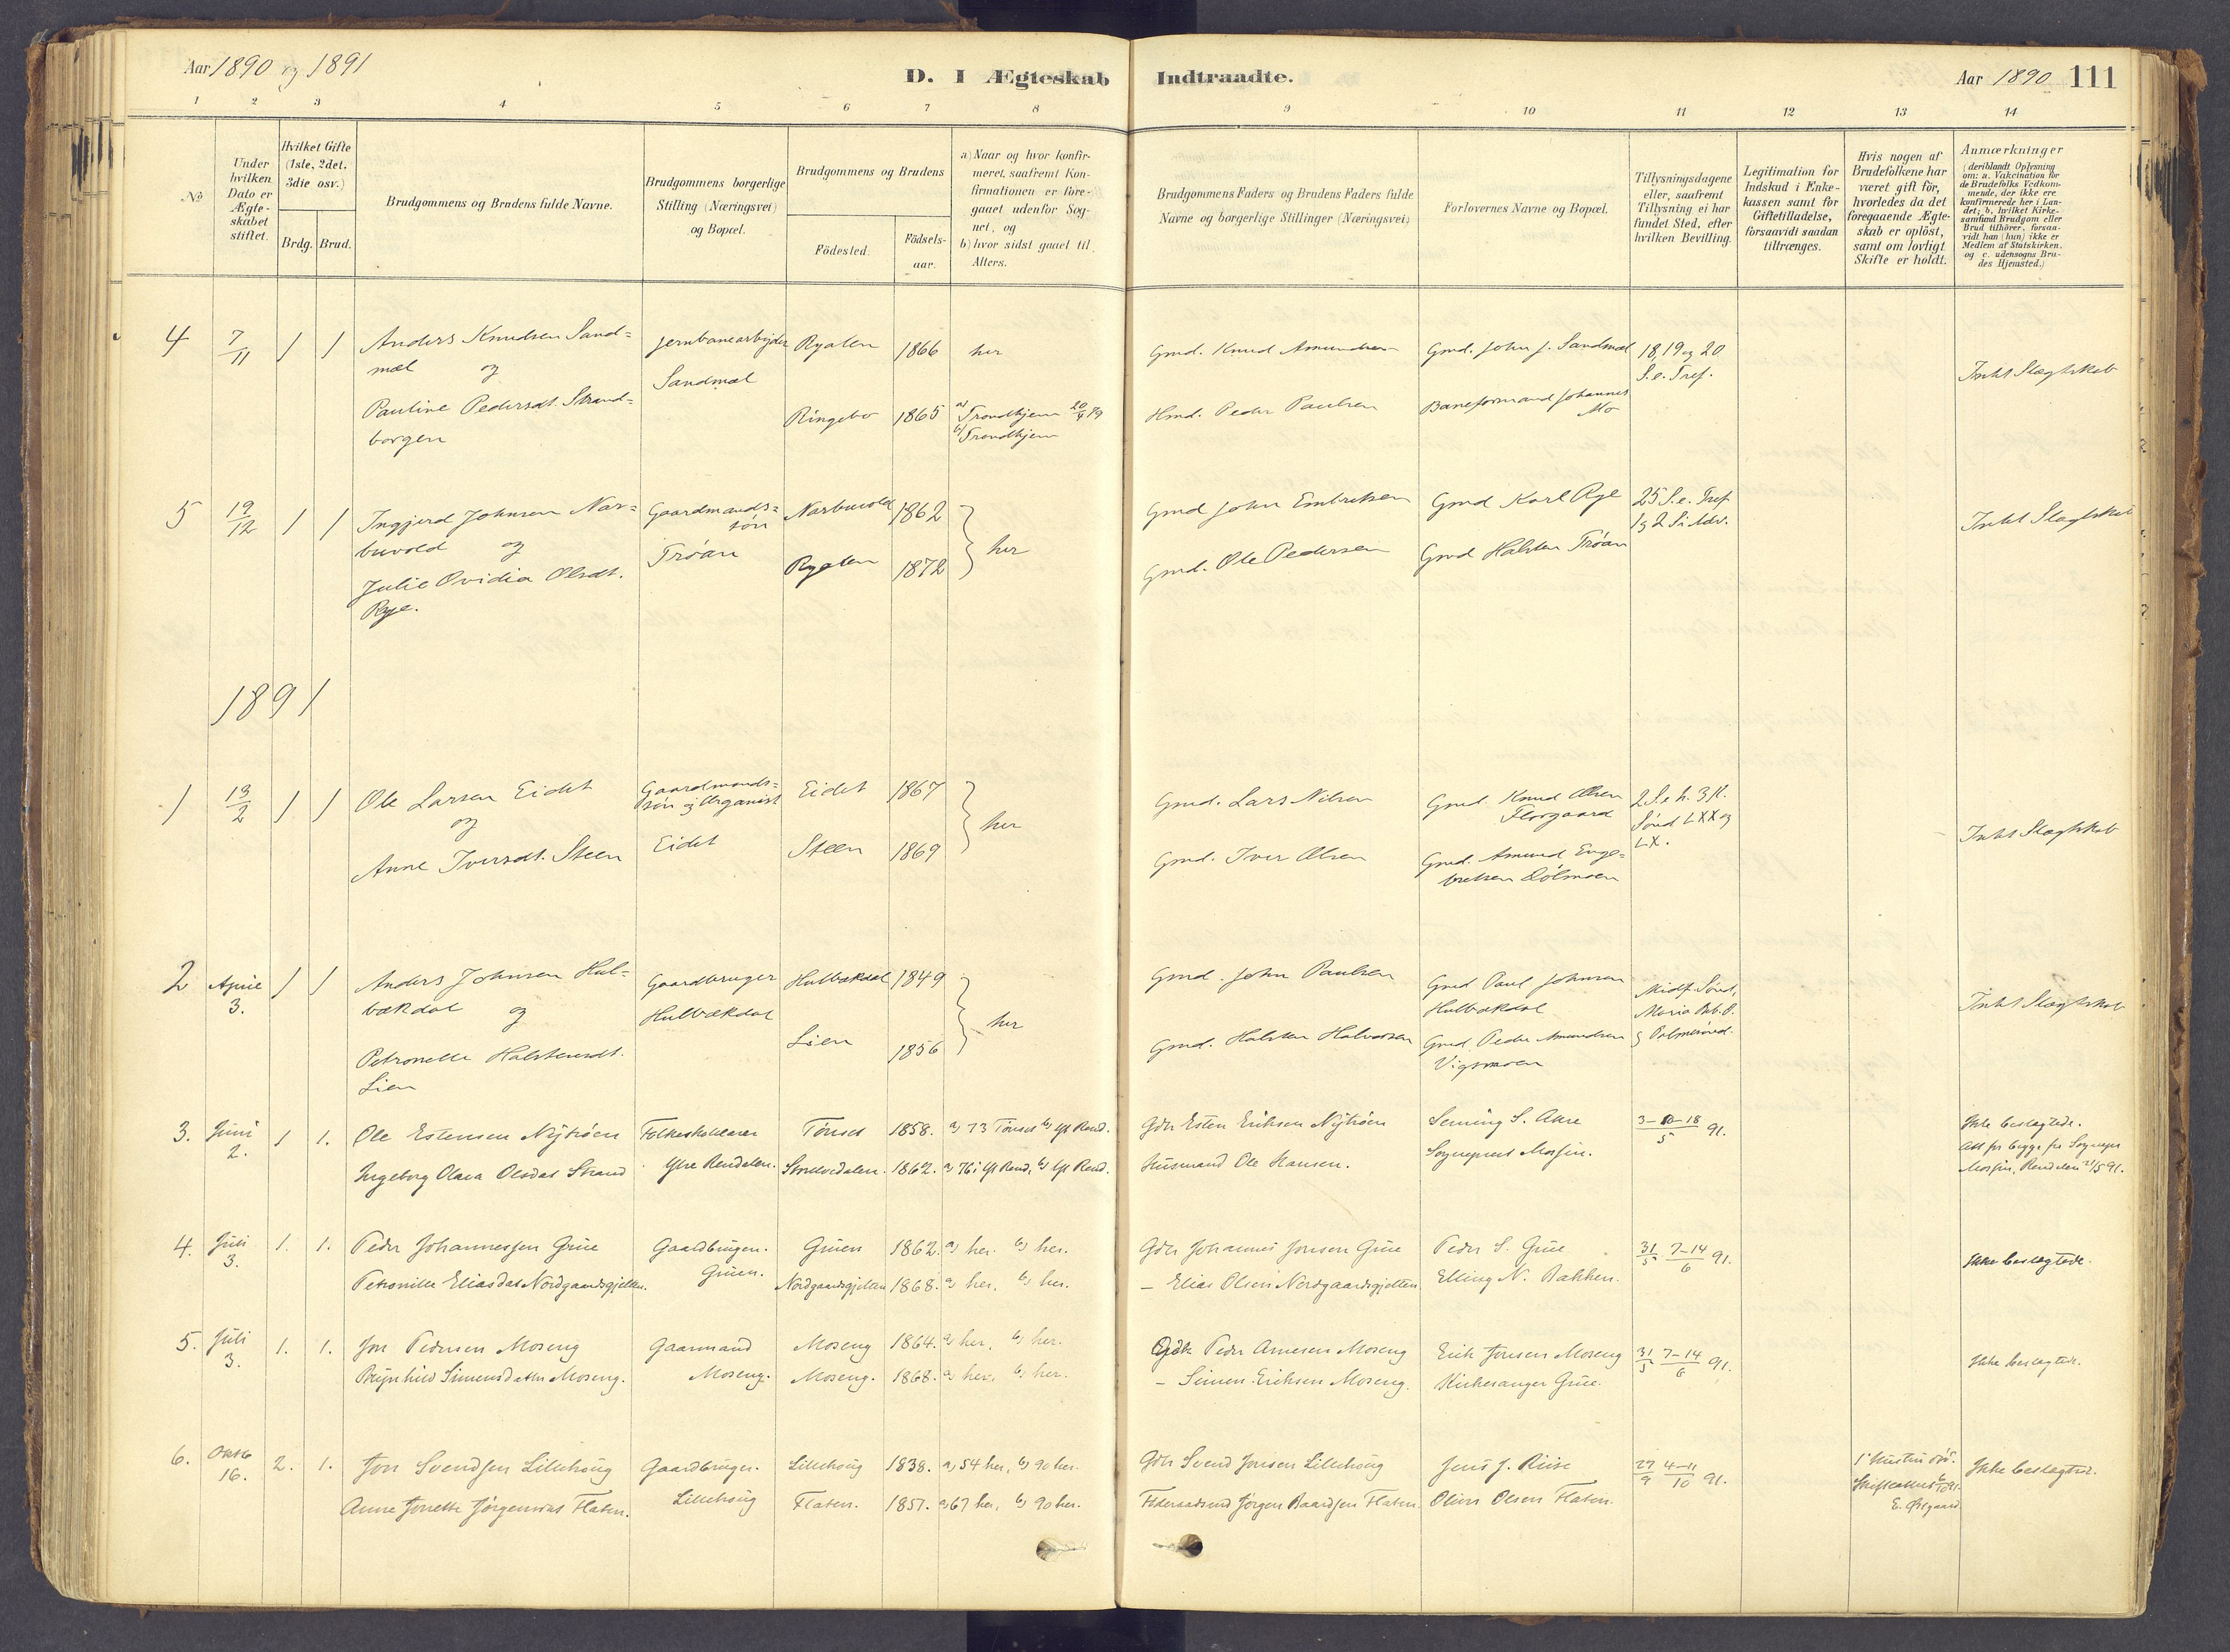 Aar 1890 og 1891
D. I Ægteskab Indtraadte.
Aar 1890 111
1 2 3 4 5 6 7 8 9 10 11 12 13 14
No
Under hvilken Dato er Ægteskabet stiftet.
Hvilket Gifte (1ste, 2det, 3die osv.)
Brdg. Brud.
Brudgommens og Brudens fulde Navne.
Brudgommens borgerlige Stilling (Næringsvei) og Bopæl.
Brudgommens og Brudens
Födested. Födsels-aar.
a) Naar og hvor konfirmeret, saafremt Konfirmationen er foregaaet udenfor Sognet, og
b) hvor sidst gaaet til Alters.
Brudgommens Faders og Brudens Faders fulde Navne og borgerlige Stillinger (Næringsvei)
Forlovernes Navne og Bopæl.
Tillysningsdagene eller, saafremt Tillysning ei har fundet Sted, efter hvilken Bevilling.
Legitimation for Indskud i Enkekassen samt for Giftetilladelse, forsaavidt saadan tiltrænges.
Hvis nogen af Brudefolkene har været gift för, hvorledes da det foregaaende Ægteskab er oplöst, samt om lovligt Skifte er holdt.
Anmærkninger
(deriblandt Oplysning om: a. Vakcination for de Brudefolks Vedkommende, der ikke ere konfirmerede her i Landet; b. hvilket Kirkesamfund Brudgom eller Brud tilhörer, forsaavidt han (hun) ikke er Medlem af Statskirken, og c. udensogns Brudes Hjemsted.)
4 7/11 1 1 Anders Knudsen Sand= Jernbanearbejder Ryalen 1866 her Gmd. Knud Amundsen Gmd. John J. Sandmæl 18, 19 og 20
mæl og Sandmæl S. e. Tref. Intet Slægtskab
Pauline Pedersdt. Strand= Ringebo 1865 a) Trondhjem b) Trondhjem Hmd. Peder Paulsen Baneformand Johannes
borgen Mo
5 19/12 1 1 Ingjerd Johnsen Nar= Gaardmands= Narbuvold 1862 Gmd John Embretsen Gmd Karl Rye 25 S. e. Tref
buvold og søn her 1 og 2 S. i Adv. Intet Slægtskab
Julie Ovidia Olsdt. Trøan Ryalen 1872 Gmd. Ole Pedersen Gmd Halsten Trøan
Rye.
1891
1 13/2 1 1 Ole Larsen Eidet Gaardmands= Eidet 1867 Gmd. Lars Nilsen Gmd. Knud Olsen
og søn og Organist her Florgaard Sønd LXX og LX. Intet Slægtskab
Anne Iversdt. Steen Eidet Steen 1869 Gmd. Iver Olsen Gmd. Amund Enge=
bretsen Dølmoen
2 April 3. 1 1 Anders Johnsen Hul= Gaardbruger Hulbækdal 1849 Gmd. John Paulsen Gmd Paul Johnsen Midf. Sønd,
bækdal og Hulbækdal her Hulbækdal Maria Beb. Intet Slægtskab
Petronelle Halstensdt. Lien 1856 Gmd. Halsten Halvorsen Gmd. Peder Amundsen og Palmesønd.
Lien Vigsmoen
3. Juni 2. 1 1. Ole Estensen Nytrøen Folkeskolelærer Tönset 1858. a) 73 Tönset b) Yt Rend. Gdbr Esten Eriksen Nytröen Semming S. Aure 3-10-18/5 91. Ikke beslægtede.
Ingeborg Olava Olsdat Strand Ytre Rendalen. Storelvedalen. 1862. a) 76 i Yt Rend, b) Yt Rend. Husmand Ole Hansen. Sognepræst Morsin. Att fra begge fra Sognepr Morsin, Rendalen 21/5 91.
4. Juli 3. 1. 1. Peder Johannessen Grue Gaardbruger. Gruen 1862. a) her. b) her. Gdbr Johannes Jonsen Grue Peder S. Grue 31/5 7-14/6 91. Ikke beslægtede.
Petronille Eliasdat Nordgaardsgjelten. Gruen. Nordgaardsgjelten 1868. a) her, b) her. – Elias Olsen Nordgaardsgjelten. Elling N. Bakken.
5. Juli 3. 1. 1. Jon Pedersen Moseng Gaarmand Moseng 1864. a) her, b) her. Gdbr Peder Arnesen Moseng Erik Jonsen Moseng 31/5 7-14/6 91. Ikke beslægtede.
Brynhild Simensdatter Moseng. Moseng. Moseng. 1868. a) her, b) her. – Simen Eriksen Moseng. Kirkesanger Grue.
6. Oktb 16. 2. 1. Jon Svendsen Lillehoug Gaardbruger. Lillehoug 1838. a) 54 her, b) 90 her. Gdbr Svend Jonsen Lillehoug Jens J. Riise 27/9 4-11/10 91. Ikke beslægtede.
Anne Jonette Jörgensdat Flaten. Lillehoug Flaten. 1851. a) 67 her, b) 90 her. Føderaadsmd Jörgen Baardsen Flaten. Oliver Olsen Flaten. E. Østgaard